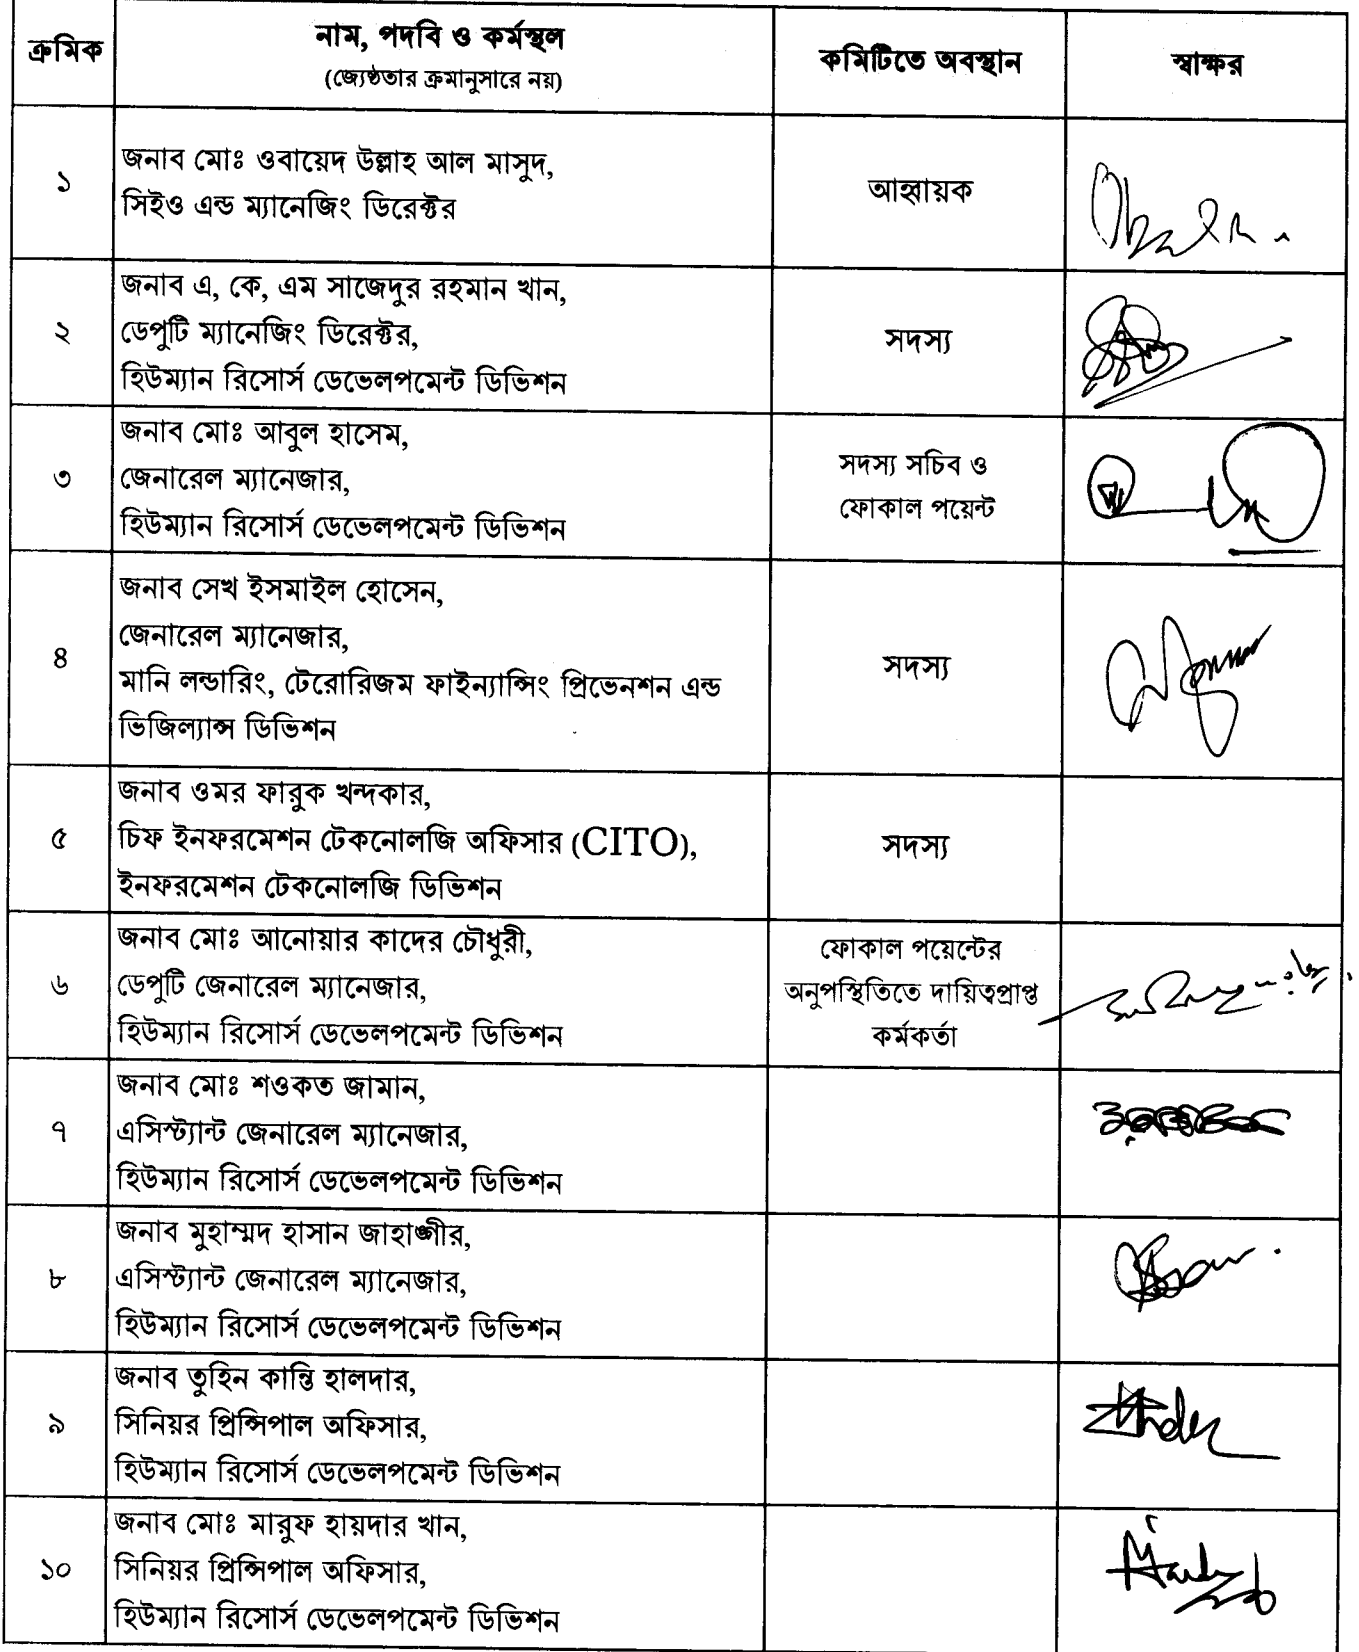 ক্রমিক
নাম, পদবি ও কর্মস্থল
(জ্যেষ্ঠতার ক্রমানুসারে নয়)
কমিটিতে অবস্থান
স্বাক্ষর
১
জনাব মোঃ ওবায়েদ উল্লাহ আল মাসুদ,
সিইও এন্ড ম্যানেজিং ডিরেক্টর
আহ্বায়ক
২
জনাব এ, কে, এম সাজেদুর রহমান খান,
ডেপুটি ম্যানেজিং ডিরেক্টর,
হিউম্যান রিসোর্স ডেভেলপমেন্ট ডিভিশন
সদস্য
৩
জনাব মোঃ আবুল হাসেম,
জেনারেল ম্যানেজার,
হিউম্যান রিসোর্স ডেভেলপমেন্ট ডিভিশন
সদস্য সচিব ও
ফোকাল পয়েন্ট
৪
জনাব সেখ ইসমাইল হোসেন,
জেনারেল ম্যানেজার,
মানি লন্ডারিং, টেরোরিজম ফাইন্যান্সিং প্রিভেনশন এন্ড
ভিজিল্যান্স ডিভিশন
সদস্য
৫
জনাব ওমর ফারুক খন্দকার,
চিফ ইনফরমেশন টেকনোলজি অফিসার (CITO),
ইনফরমেশন টেকনোলজি ডিভিশন
সদস্য
৬
জনাব মোঃ আনোয়ার কাদের চৌধুরী,
ডেপুটি জেনারেল ম্যানেজার,
হিউম্যান রিসোর্স ডেভেলপমেন্ট ডিভিশন
ফোকাল পয়েন্টের
অনুপস্থিতিতে দায়িত্বপ্রাপ্ত
কর্মকর্তা
৭
জনাব মোঃ শওকত জামান,
এসিস্ট্যান্ট জেনারেল ম্যানেজার,
হিউম্যান রিসোর্স ডেভেলপমেন্ট ডিভিশন
৮
জনাব মুহাম্মদ হাসান জাহাঙ্গীর,
এসিস্ট্যান্ট জেনারেল ম্যানেজার,
হিউম্যান রিসোর্স ডেভেলপমেন্ট ডিভিশন
৯
জনাব তুহিন কান্তি হালদার,
সিনিয়র প্রিন্সিপাল অফিসার,
হিউম্যান রিসোর্স ডেভেলপমেন্ট ডিভিশন
১০
জনাব মোঃ মারুফ হায়দার খান,
সিনিয়র প্রিন্সিপাল অফিসার,
হিউম্যান রিসোর্স ডেভেলপমেন্ট ডিভিশন